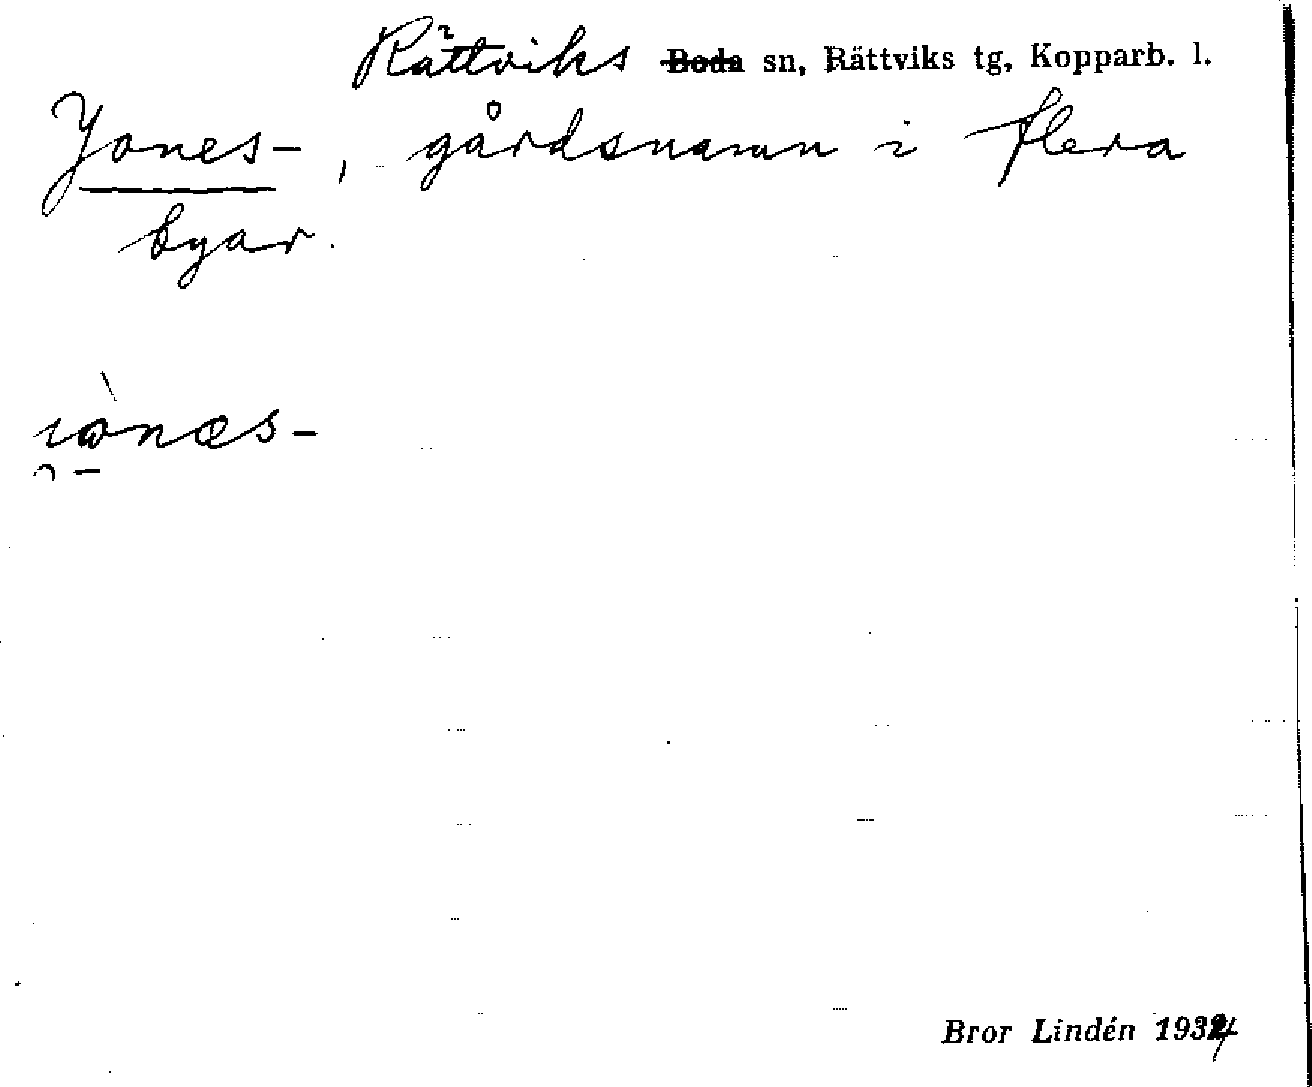 Rättviks Boda sn, Rättviks tg, Kopparb. l.
Jones-, gårdsnamn i flera
byar.
Bror Lindén 1934